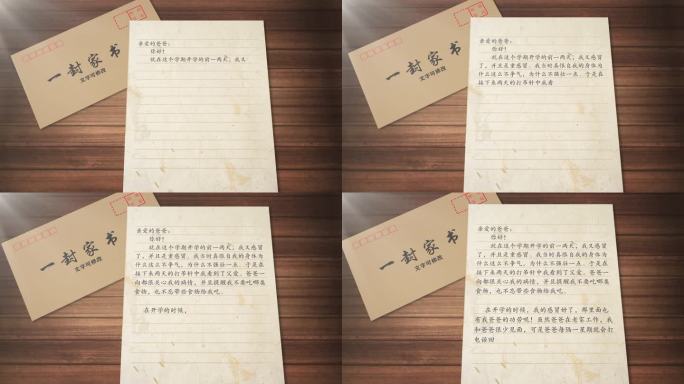 一封家书
文字可修改
亲爱的爸爸：
你好！
就在这个学期开学的前一两天，我又
一封家书
文字可修改
亲爱的爸爸：
你好！
就在这个学期开学的前一两天，我又感冒
了，并且是重感冒。我当时真恨自我的身体为
什么这么不争气，为什么不强壮一点。于是在
接下来两天的打吊针中我看
一封家书
文字可修改
亲爱的爸爸：
你好！
就在这个学期开学的前一两天，我又感冒
了，并且是重感冒。我当时真恨自我的身体为
什么这么不争气，为什么不强壮一点。于是在
接下来两天的打吊针中我看到了父爱。爸爸一
向都很关心我的病情，并且提醒我不要吃哪类
食物，也不忘带些食物给我吃。
在开学的时候，
一封家书
文字可修改
亲爱的爸爸：
你好！
就在这个学期开学的前一两天，我又感冒
了，并且是重感冒。我当时真恨自我的身体为
什么这么不争气，为什么不强壮一点。于是在
接下来两天的打吊针中我看到了父爱。爸爸一
向都很关心我的病情，并且提醒我不要吃哪类
食物，也不忘带些食物给我吃。
在开学的时候，我的感冒好了，那里面也
有我爸爸的功劳呢！虽然爸爸在老家工作，我
和爸爸很少见面，可是爸爸每隔一星期就会打
电话回